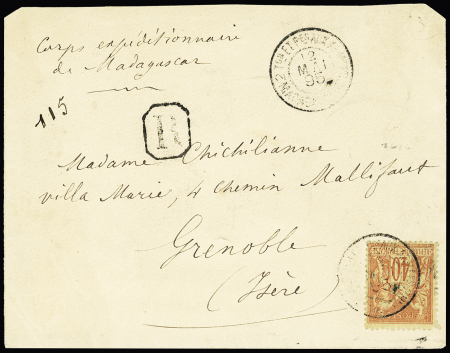 Corps expéditionnaire
de Madagascar
115
R
12
MAI
95
Madame Chichilianne
villa Marie, 4 chemin Mallifaut
Grenoble
(Isère)
40